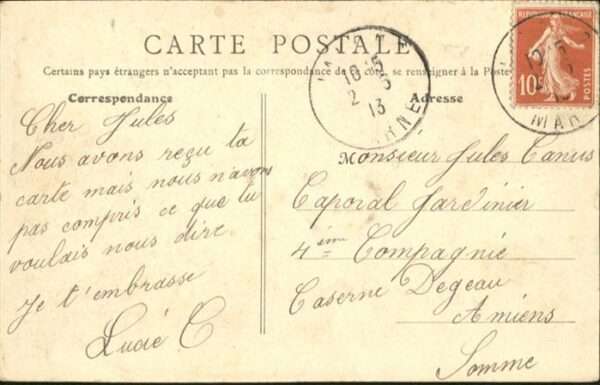 CARTE POSTALE
Certains pays étrangers n'acceptant pas la correspondance de ce côté, se renseigner à la Poste
Correspondance
Cher Jules
Nous avons reçu ta
carte mais nous n'avons
pas compris ce que tu
voulais nous dire.
Je t'embrasse
Lucie C
Adresse
Monsieur Jules Canus
Caporal Jardinier
4ème Compagnie
Caserne Degeau
Amiens
Somme
10 15
2 5
13
RNE
RÉPUBLIQUE FRANÇAISE
10c
MAR